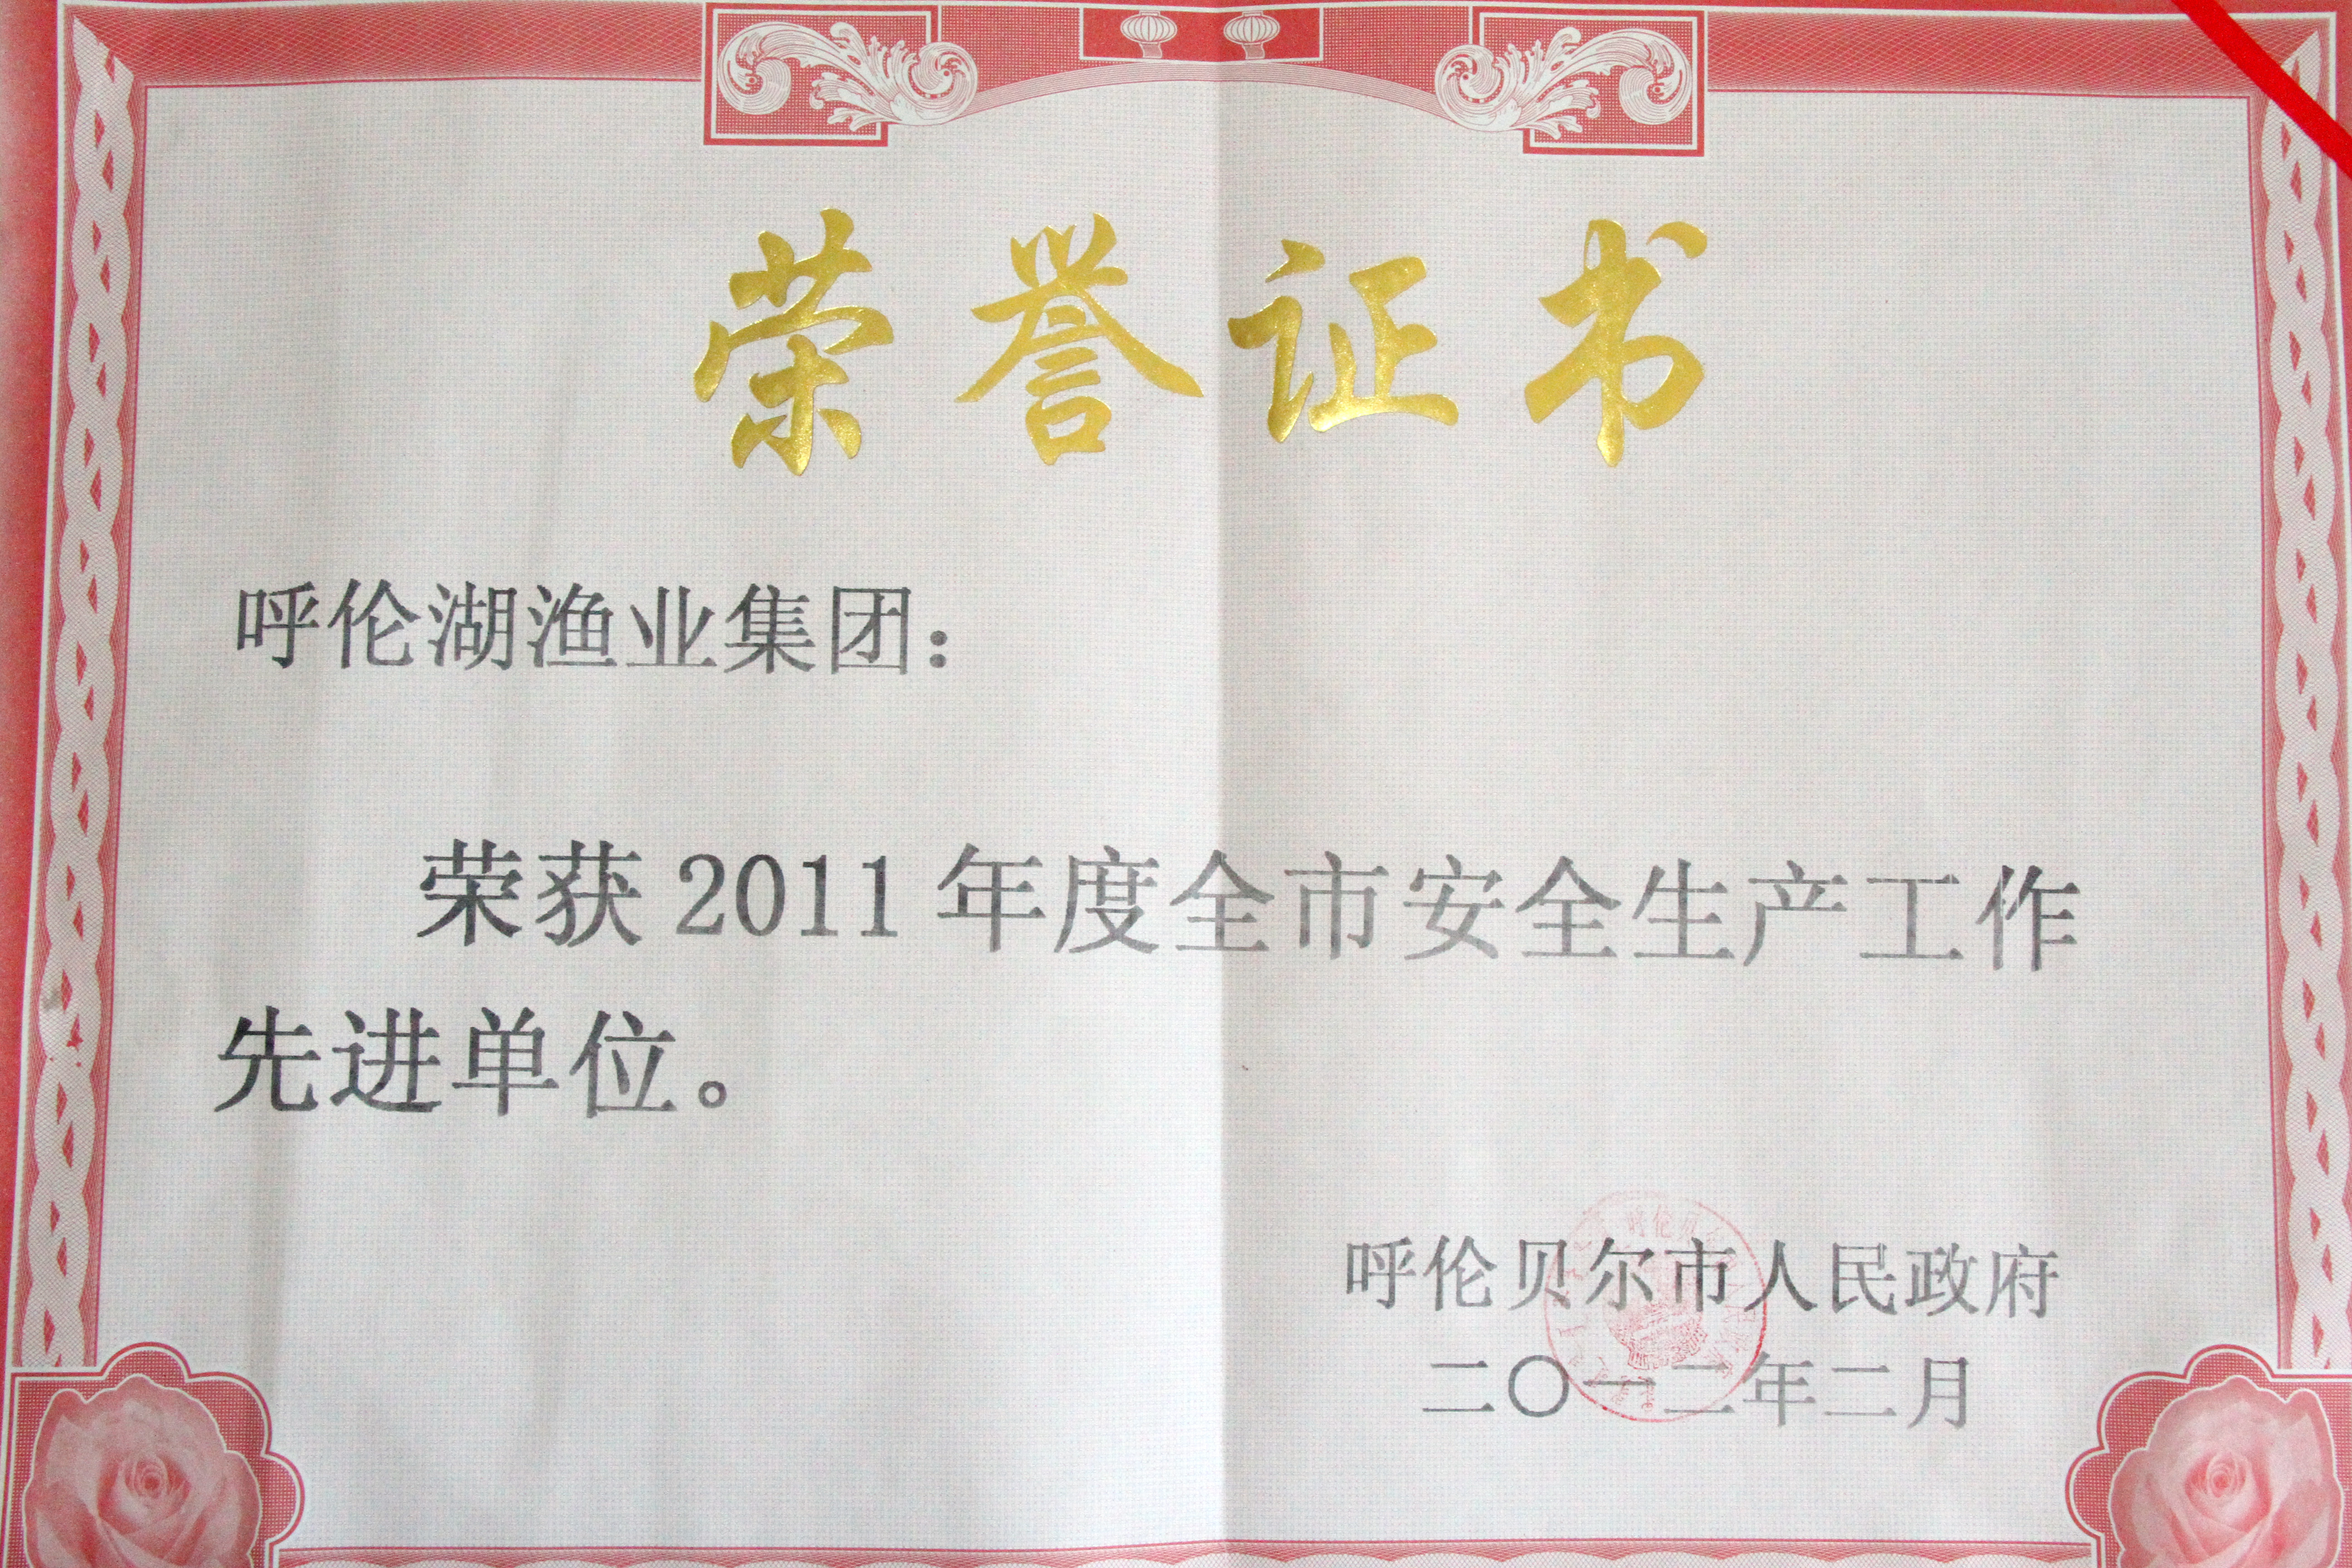 荣誉证书
呼伦湖渔业集团：
荣获2011年度全市安全生产工作
先进单位。
呼伦贝尔市人民政府
二〇一二年二月